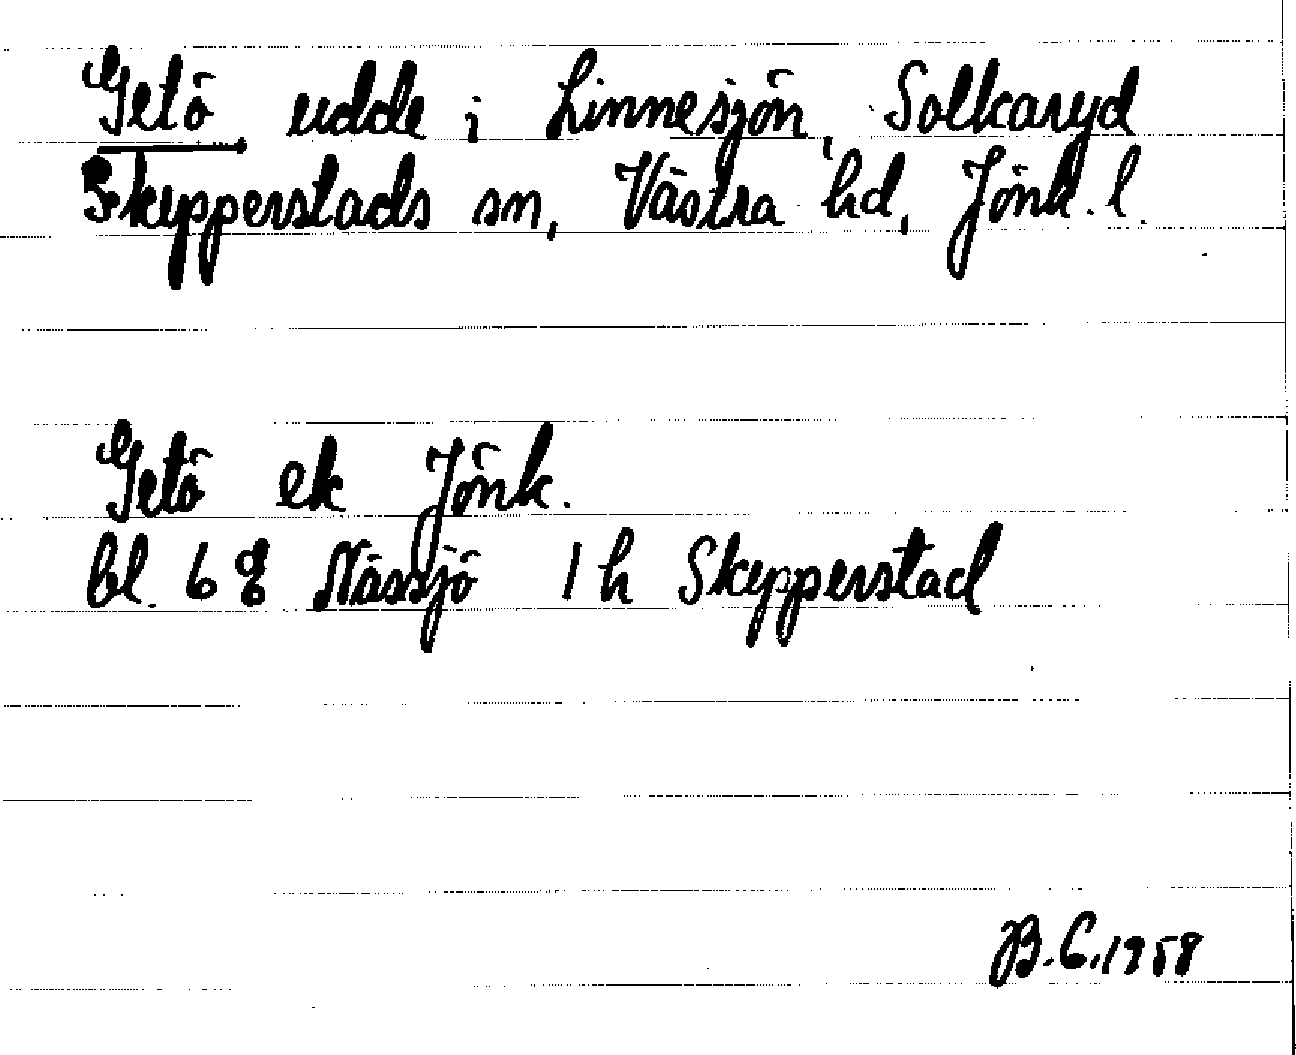 Getö udde i Linnesjön, Solkaryd
Skepperstads sn, Västra hd, Jönk. l.
Getö ek Jönk.
bl. 6 g Nässjö 1 h Skepperstad
B.C. 1958